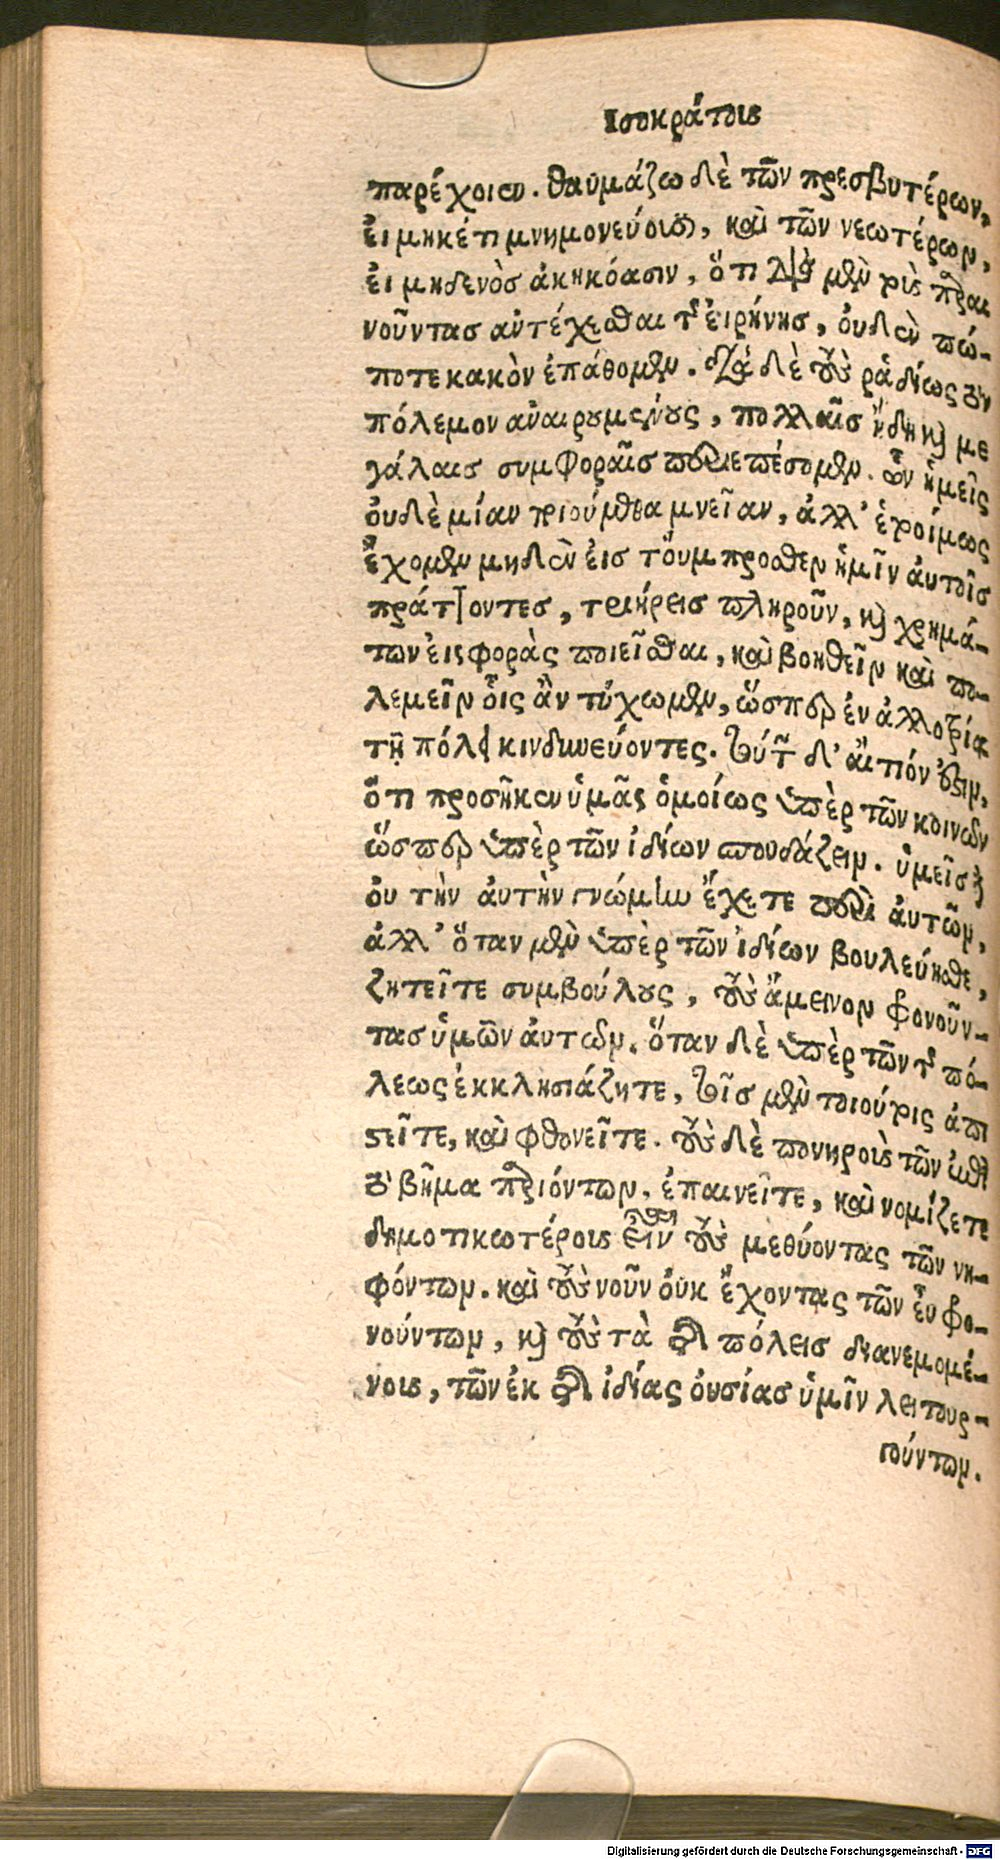 Ισοκράτους
παρέχουσιν. θαυμάζω δὲ τῶν πρεσβυτέρων,
εἰ μηκέτι μνημονεύουσι, καὶ τῶν νεωτέρων,
εἰ μηδενὸς ἀκηκόασιν, ὅτι διὰ μὲν τοὺς παραι
νοῦντας ἀντέχεσθαι τῆς εἰρήνης, οὐδὲν πώ-
ποτε κακὸν ἐπάθομεν. διὰ δὲ τοὺς ῥαδίως τὸν
πόλεμον ἀναιρουμένους, πολλαῖς ἤδη καὶ με
γάλαις συμφοραῖς περιεπέσομεν. ὧν ἡμεῖς
οὐδὲ μίαν ποιούμεθα μνείαν, ἀλλ' ἑτοίμως
ἔχομεν μηδὲν εἰς τοὔμπροσθεν ἡμῖν αὐτοῖς
πράττοντες, τριήρεις πληροῦν, καὶ χρημά-
των εἰσφορὰς ποιεῖσθαι, καὶ βοηθεῖν καὶ πο-
λεμεῖν οἷς ἂν τύχωμεν, ὥσπερ ἐν ἀλλοτρίᾳ
τῇ πόλει κινδυνεύοντες. τούτων δ' αἴτιόν ἐστιν,
ὅτι προσῆκεν ὑμᾶς ὁμοίως ὑπὲρ τῶν κοινῶν
ὥσπερ ὑπὲρ τῶν ἰδίων σπουδάζειν. ὑμεῖς δὲ
οὐ τὴν αὐτὴν γνώμην ἔχετε περὶ αὐτῶν,
ἀλλ' ὅταν μὲν ὑπὲρ τῶν ἰδίων βουλεύησθε,
ζητεῖτε συμβούλους, τοὺς ἄμεινον φρονοῦν-
τας ὑμῶν αὐτῶν. ὅταν δὲ ὑπὲρ τῶν τῆς πό-
λεως ἐκκλησιάζητε, τοῖς μὲν τοιούτοις ἀπι
στεῖτε, καὶ φθονεῖτε. τοὺς δὲ πονηροὺς τῶν ἐπὶ
τὸ βῆμα παριόντων, ἐπαινεῖτε, καὶ νομίζετε
δημοτικωτέρους εἶναι τοὺς μεθύοντας τῶν νη-
φόντων. καὶ τοὺς νοῦν οὐκ ἔχοντας τῶν εὖ φρο-
νούντων, καὶ τοὺς τὰ τῆς πόλεις διανεμομέ-
νους, τῶν ἐκ τῆς ἰδίας οὐσίας ὑμῖν λειτουρ-
γούντων.
Digitalisierung gefördert durch die Deutsche Forschungsgemeinschaft - DFG